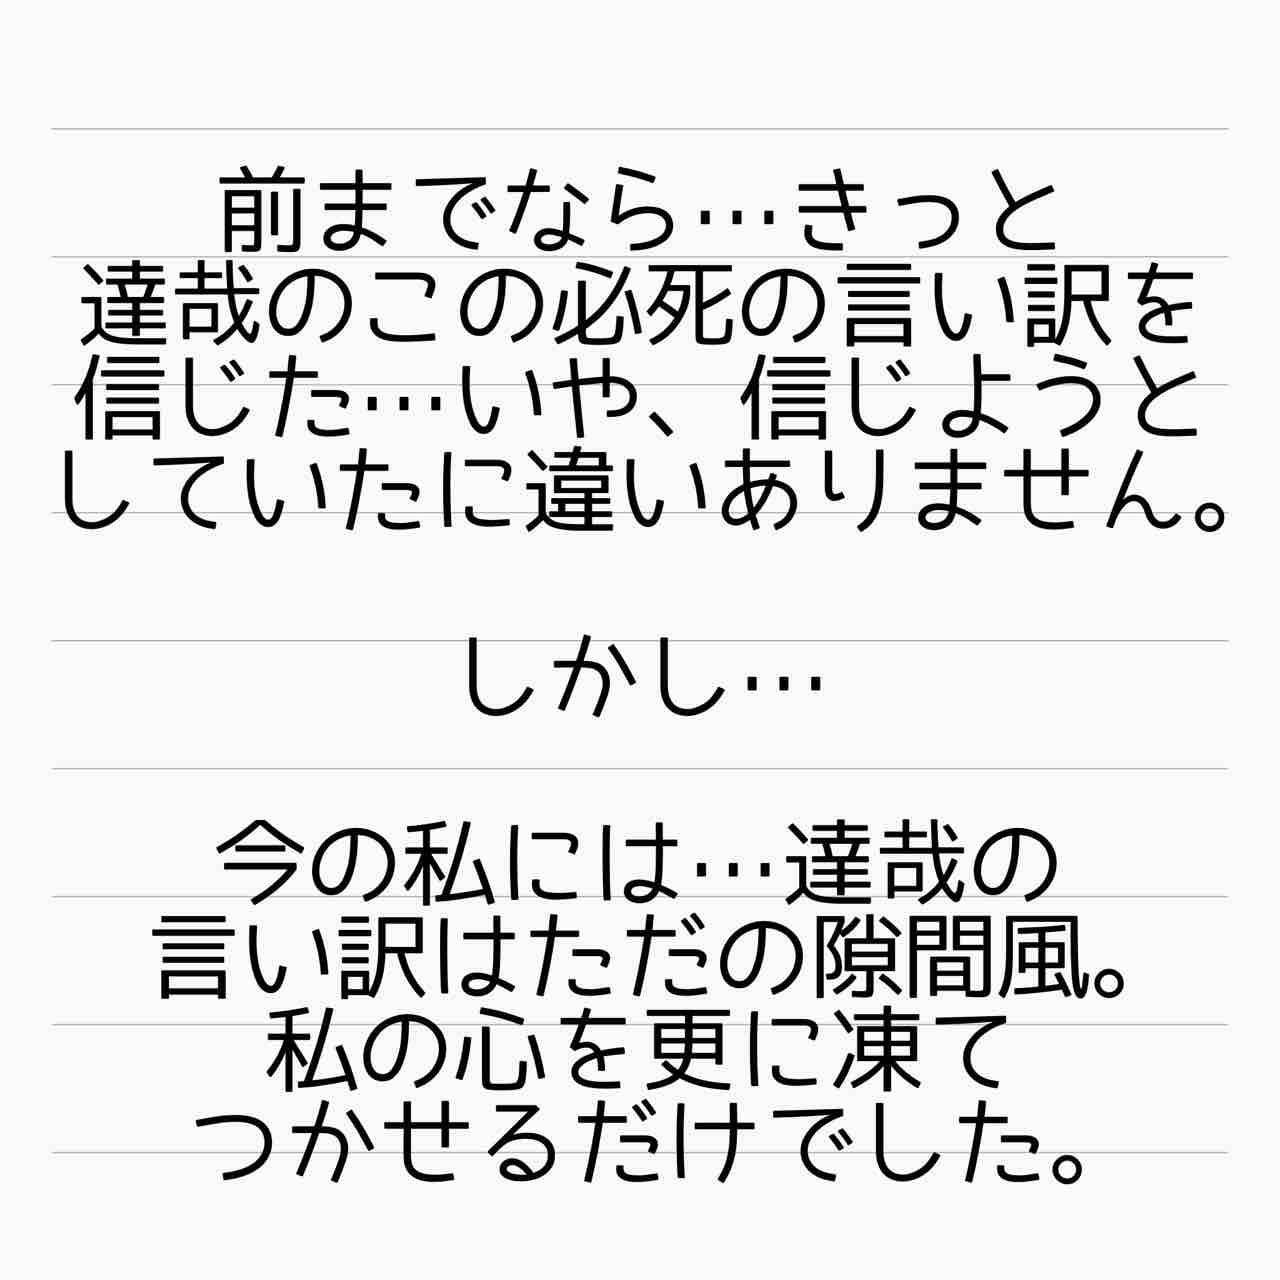 前までなら…きっと
達哉のこの必死の言い訳を
信じた…いや、信じようと
していたに違いありません。
しかし…
今の私には…達哉の
言い訳はただの隙間風。
私の心を更に凍て
つかせるだけでした。